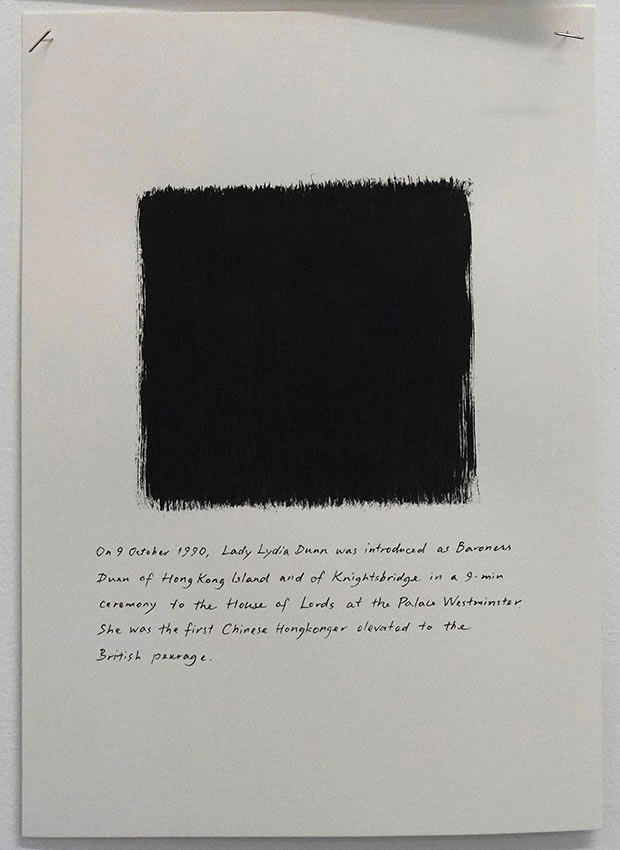 On 9 October 1990, Lady Lydia Dunn was introduced as Baroness
Dunn of Hong Kong Island and of Knightsbridge in a 9-min
ceremony to the House of Lords at the Palace Westminster.
She was the first Chinese Hongkonger elevated to the
British peerage.